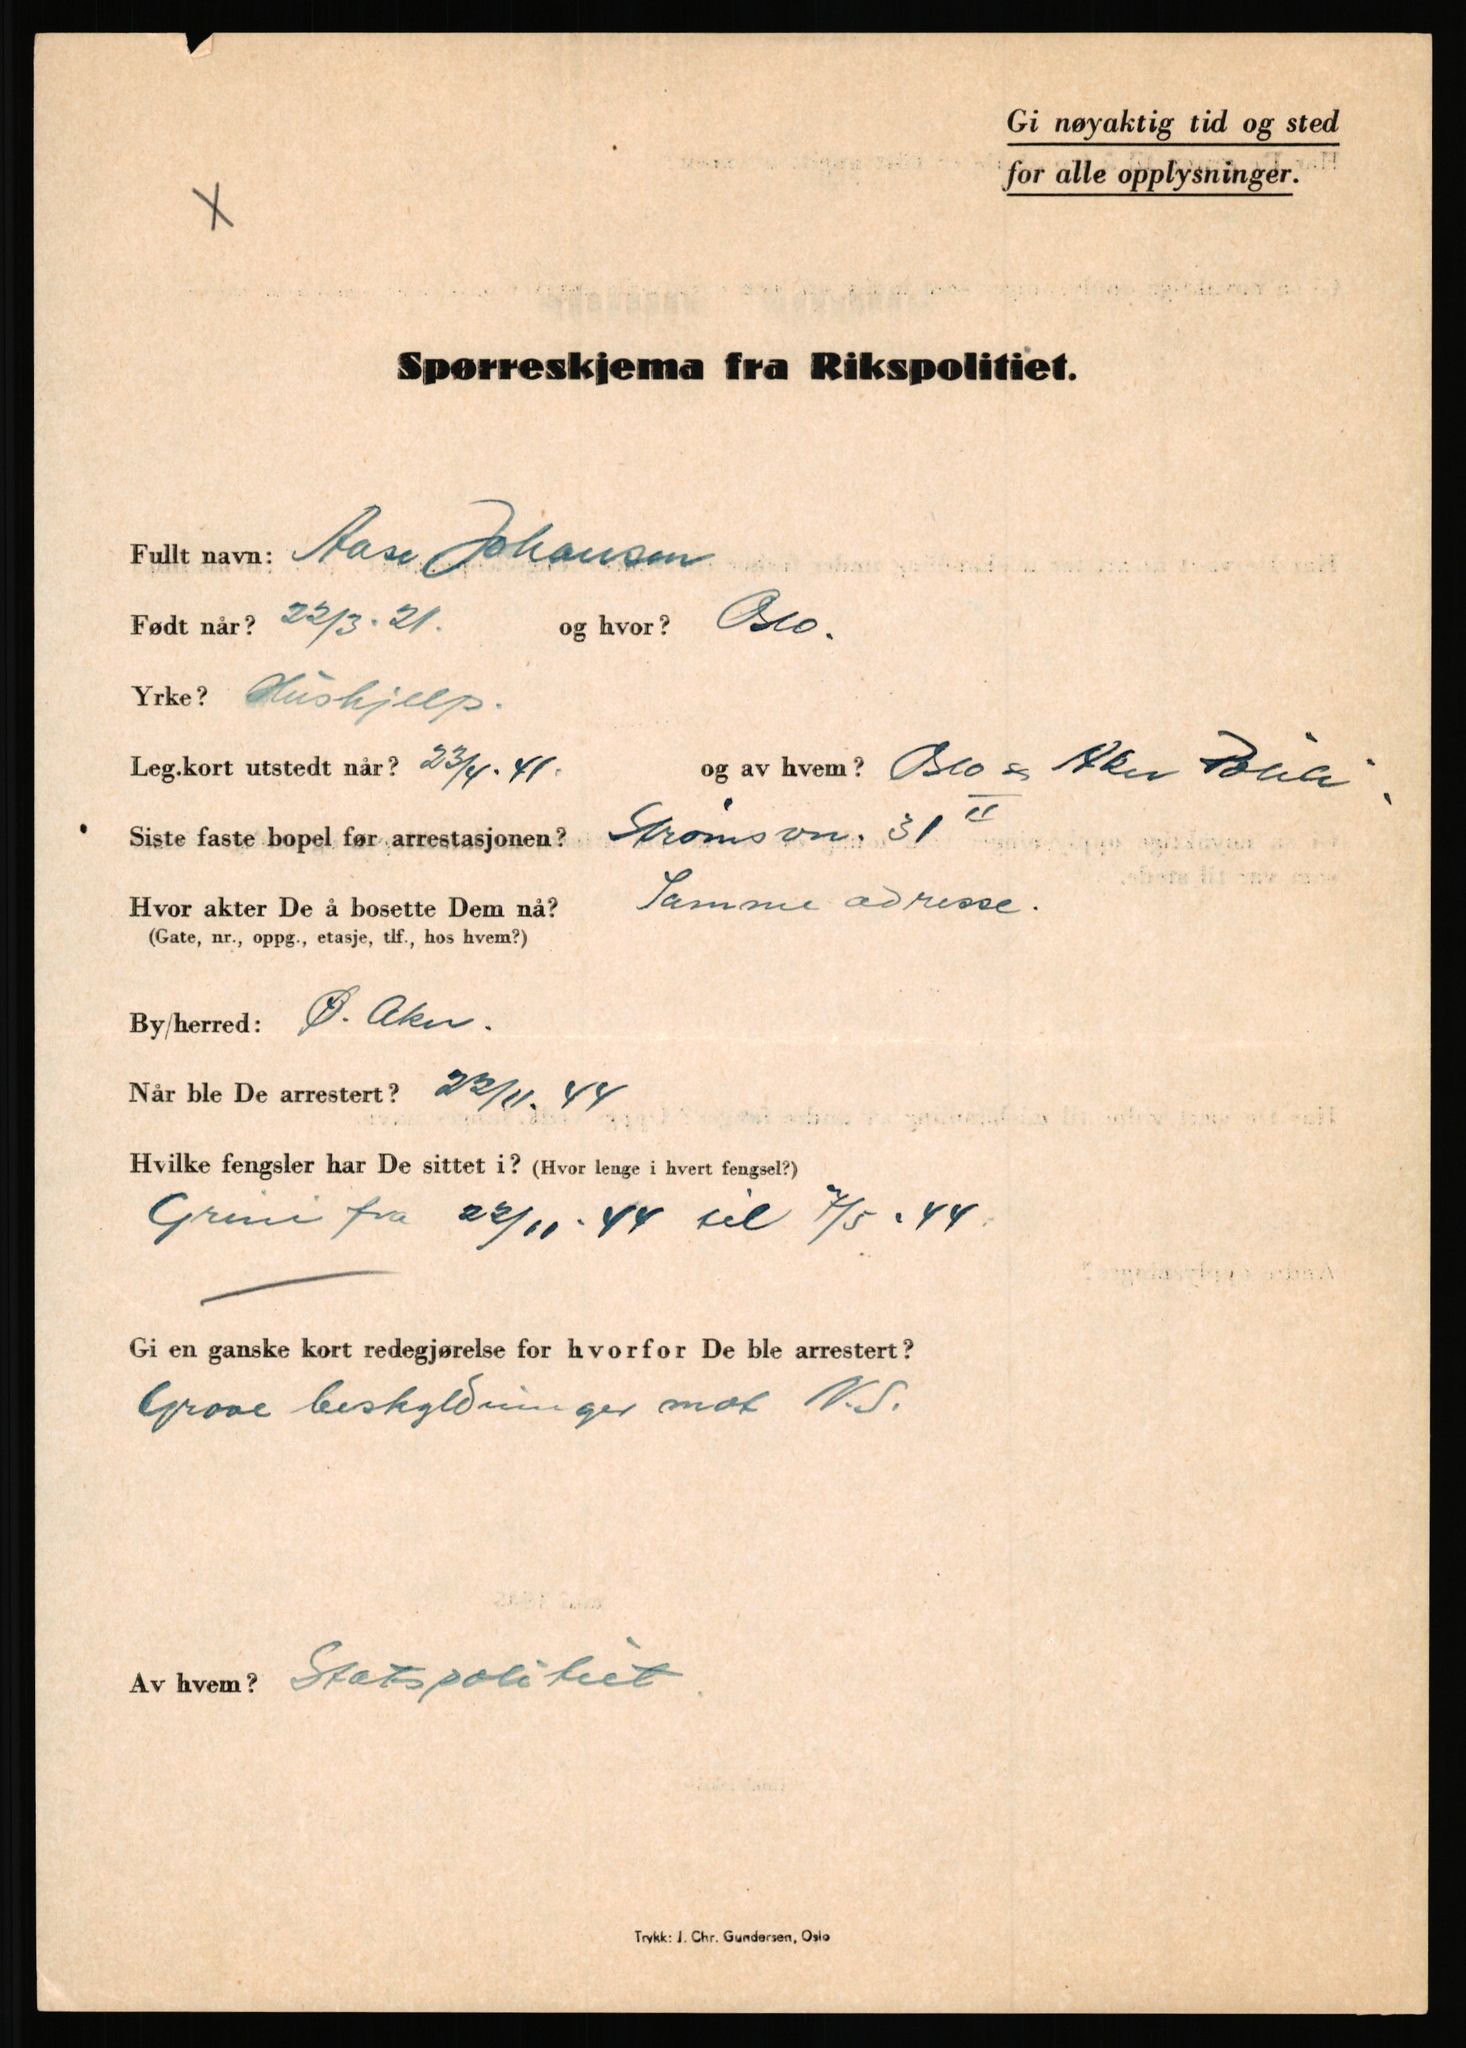 Gi nøyaktig tid og sted
for alle opplysninger.
X
Spørreskjema fra Rikspolitiet.
Fullt navn: Aase Johansen
Født når? 22/3. 21. og hvor? Oslo.
Yrke? Hushjelp.
Leg.kort utstedt når? 23/4. 41. og av hvem? Oslo og Aker Politi
Siste faste bopel før arrestasjonen? Strømsvn. 31 II
Hvor akter De å bosette Dem nå? Samme adresse.
(Gate, nr., oppg., etasje, tlf., hos hvem?)
By/herred: Ø. Aker.
Når ble De arrestert? 22/11. 44
Hvilke fengsler har De sittet i? (Hvor lenge i hvert fengsel?)
Grini fra 22/11. 44 til 7/5. 44.
Gi en ganske kort redegjørelse for hvorfor De ble arrestert?
Grove beskyldninger mot N.S.
Av hvem? Statspolitiet.
Trykk: J. Chr. Gundersen, Oslo